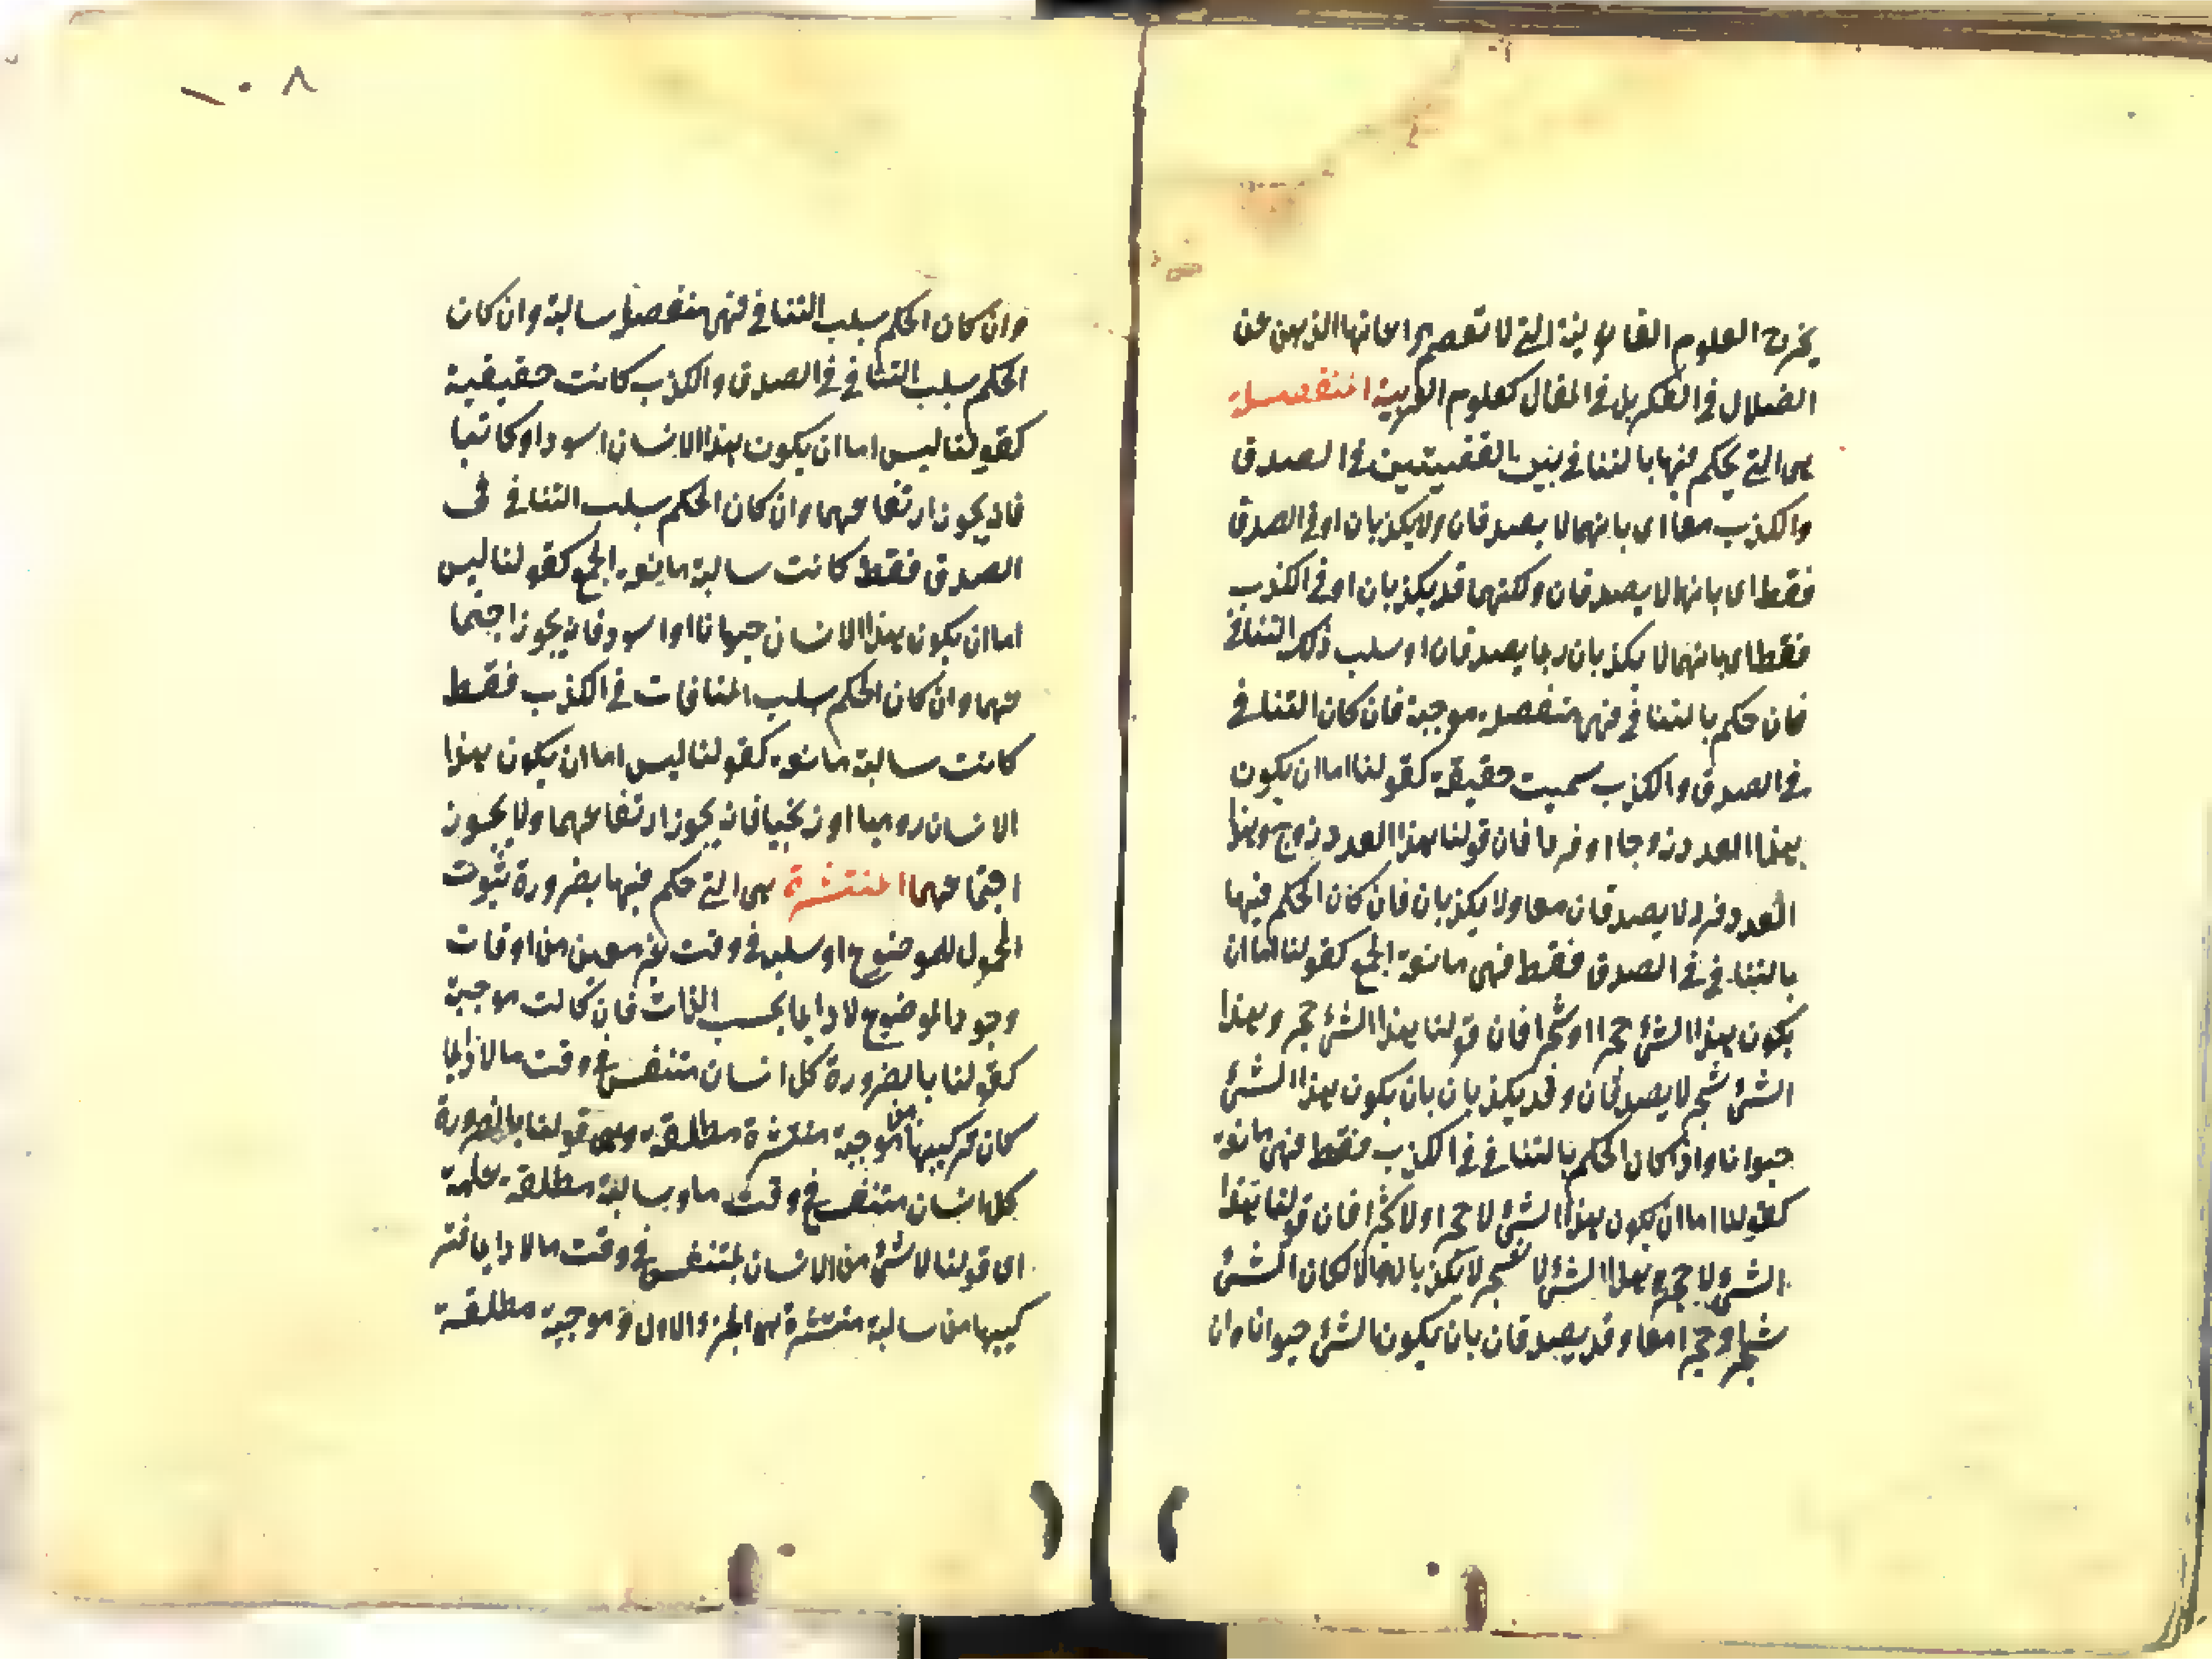 يخرج العلوم القانونية التى لا تعصم مراعاتها الذهن عن
الضلال فى الفكر بل فى المقال كعلوم العربية المنفصلة
هى التى يحكم فيها بالتنافى بين القضيتين فى الصدق
والكذب معا اى بانهما لا يصدقان ولا يكذبان او فى الصدق
فقط اى بانهما لا يصدقان ولكنهما قد يكذبان او فى الكذب
فقط اى بانهما لا يكذبان ربما يصدقان او سلب ذلك التنافى
فان حكم بالتنافى فهى منفصلة موجبة فان كان التنافى
فى الصدق والكذب سميت حقيقة كقولنا اما ان يكون
هذا العدد زوجا او فردا فان قولنا هذا العدد زوج وهذا
العدد فرد لا يصدقان معا ولا يكذبان فان كان الحكم فيها
بالتنافى فى الصدق فقط فهى مانعة الجمع كقولنا اما ان
يكون هذا الشئ حجرا او شجرا فان قولنا هذا الشئ حجر وهذا
الشئ شجر لا يصدقان وقد يكذبان بان يكون هذا الشئ
حيوانا واذا كان الحكم بالتنافى فى الكذب فقط فهى مانعة
كقولنا اما ان يكون هذا الشئ لا حجرا ولا شجرا فان قولنا هذا
الشئ لا حجر وهذا الشئ لا شجر لا يكذبان والا لكان الشئ
شجرا وحجرا معا وقد يصدقان بان يكون الشئ حيوانا وان
١٠٨
وان كان الحكم بسلب التنافى فهى منفصلة سالبة وان كان
الحكم بسلب التنافى فى الصدق والكذب كانت حقيقية
كقولنا ليس اما ان يكون هذا الانسان اسود او كاتبا
فانه يجوز ارتفاعهما وان كان الحكم بسلب التنافى فى
الصدق فقط كانت سالبة مانعة الجمع كقولنا ليس
اما ان يكون هذا الانسان حيوانا او اسود فانه يجوز اجتما
عهما وان كان الحكم بسلب المنافات فى الكذب فقط
كانت سالبة مانعة كقولنا ليس اما ان يكون هذا
الانسان روميا او زنجيا فانه يجوز ارتفاعهما ولا يجوز
اجتماعهما المنتشرة هى التى حكم فيها بضرورة ثبوت
المحمول للموضوع او سلبه فى وقت غير معين من اوقات
وجود الموضوع لا دايما بحسب الذات فان كانت موجبة
كقولنا بالضرورة كل انسان متنفس فى وقت ما لا دايما
كان تركيبها من موجبة منتشرة مطلقة وهى قولنا بالضرورة
كل انسان متنفس فى وقت ما وسالبة مطلقة عامة
اى قولنا لا شئ من الانسان بمتنفس فى وقت ما لا دايما فتر
كيبها من سالبة منتشرة هى الجزء الاول وموجبة مطلقة